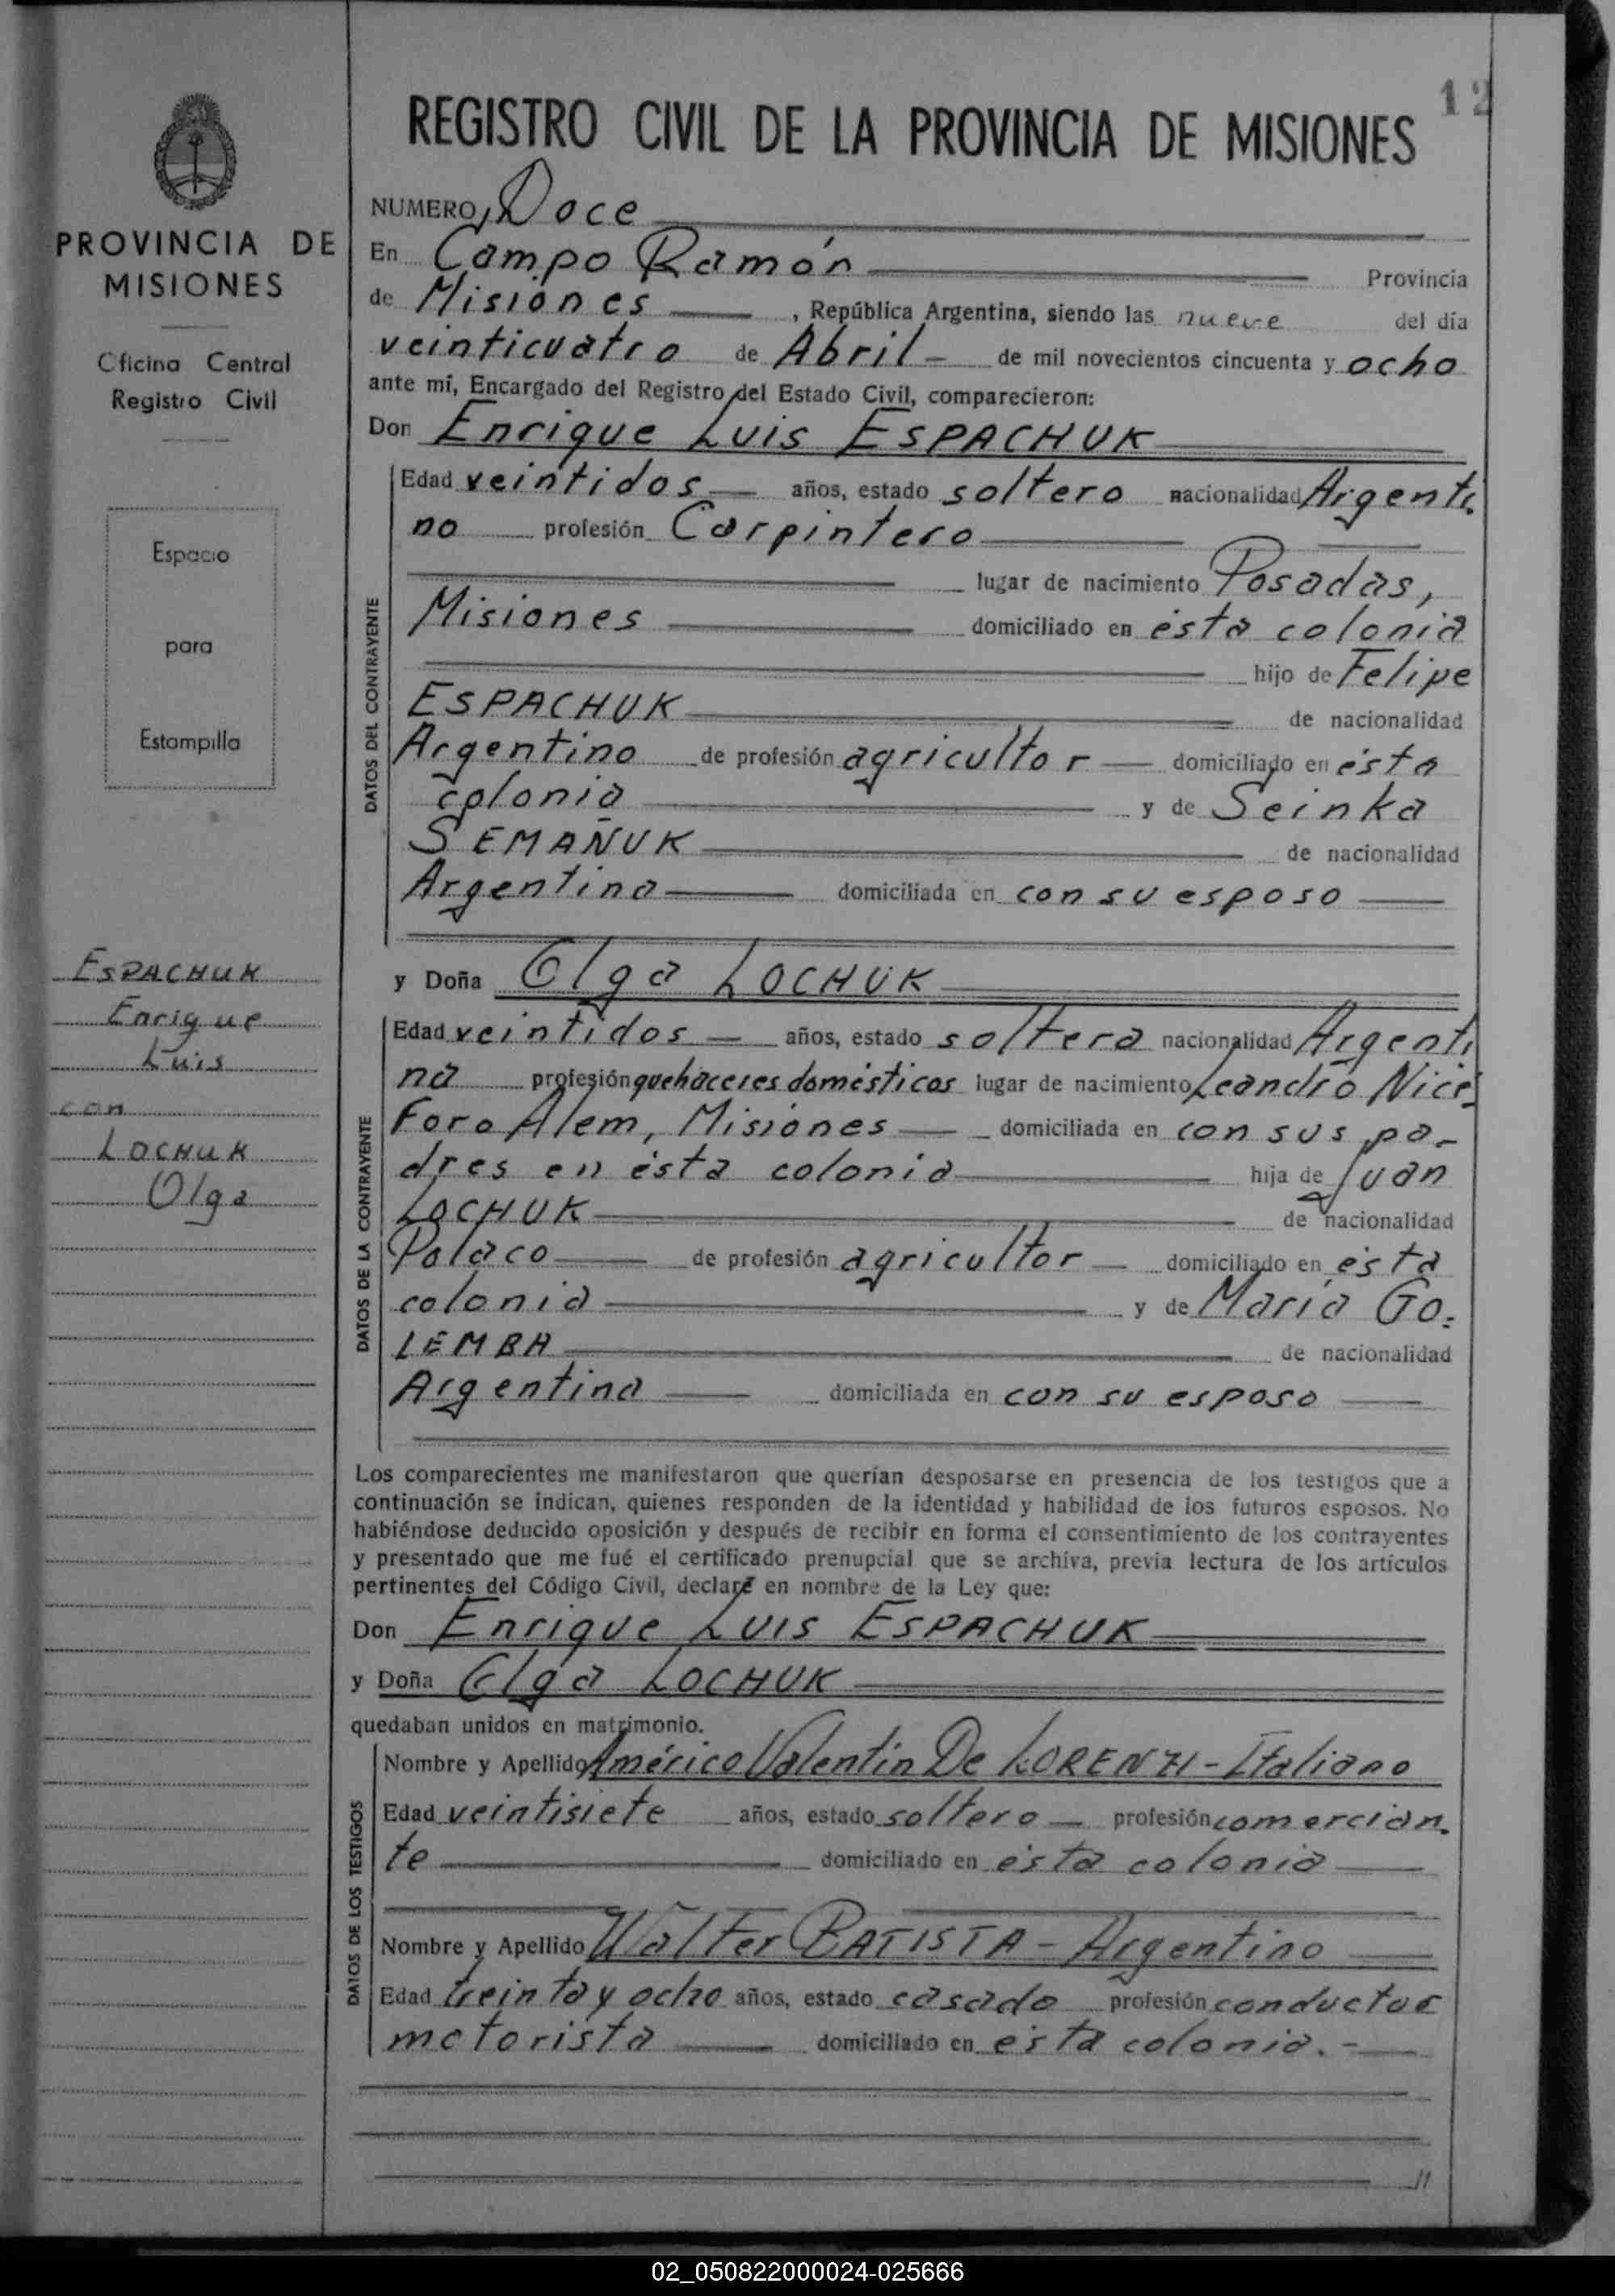 12
REGISTRO CIVIL DE LA PROVINCIA DE MISIONES
PROVINCIA DE
MISIONES
Oficina Central
Registro Civil
Espacio
para
Estampilla
ESPACHUK
Enrique
Luis
con
LOCHUK
Olga
NUMERO, Doce
En Campo Ramón Provincia
de Misiones, República Argentina, siendo las nueve del día
veinticuatro de Abril - de mil novecientos cincuenta y ocho
ante mí, Encargado del Registro del Estado Civil, comparecieron:
Don Enrique Luis ESPACHUK
DATOS DEL CONTRAYENTE
Edad veintidos años, estado soltero nacionalidad Argenti-
no profesión Carpintero
lugar de nacimiento Posadas,
Misiones domiciliado en ésta colonia
hijo de Felipe
ESPACHUK de nacionalidad
Argentino de profesión agricultor domiciliado en ésta
colonia y de Seinka
SEMAÑUK de nacionalidad
Argentina domiciliada en con su esposo
y Doña Olga LOCHUK
DATOS DE LA CONTRAYENTE
Edad veintidos años, estado soltera nacionalidad Argenti
na profesión quehaceres domésticos lugar de nacimiento Leandro Nicé-
foro Alem, Misiones domiciliada en con sus pa-
dres en ésta colonia hija de Juan
LOCHUK de nacionalidad
Polaco de profesión agricultor domiciliado en ésta
colonia y de María GO-
LEMBA de nacionalidad
Argentina domiciliada en con su esposo
Los comparecientes me manifestaron que querían desposarse en presencia de los testigos que a
continuación se indican, quienes responden de la identidad y habilidad de los futuros esposos. No
habiéndose deducido oposición y después de recibir en forma el consentimiento de los contrayentes
y presentado que me fué el certificado prenupcial que se archiva, previa lectura de los artículos
pertinentes del Código Civil, declaré en nombre de la Ley que:
Don Enrique Luis ESPACHUK
y Doña Olga LOCHUK
quedaban unidos en matrimonio.
DATOS DE LOS TESTIGOS
Nombre y Apellido Américo Valentin De LORENZI - Italiano
Edad veintisiete años, estado soltero profesión comercian-
te domiciliado en ésta colonia
Nombre y Apellido Walter BATISTA - Argentino
Edad treinta y ocho años, estado casado profesión conductor
motorista domiciliado en ésta colonia.-
//
02_050822000024-025666